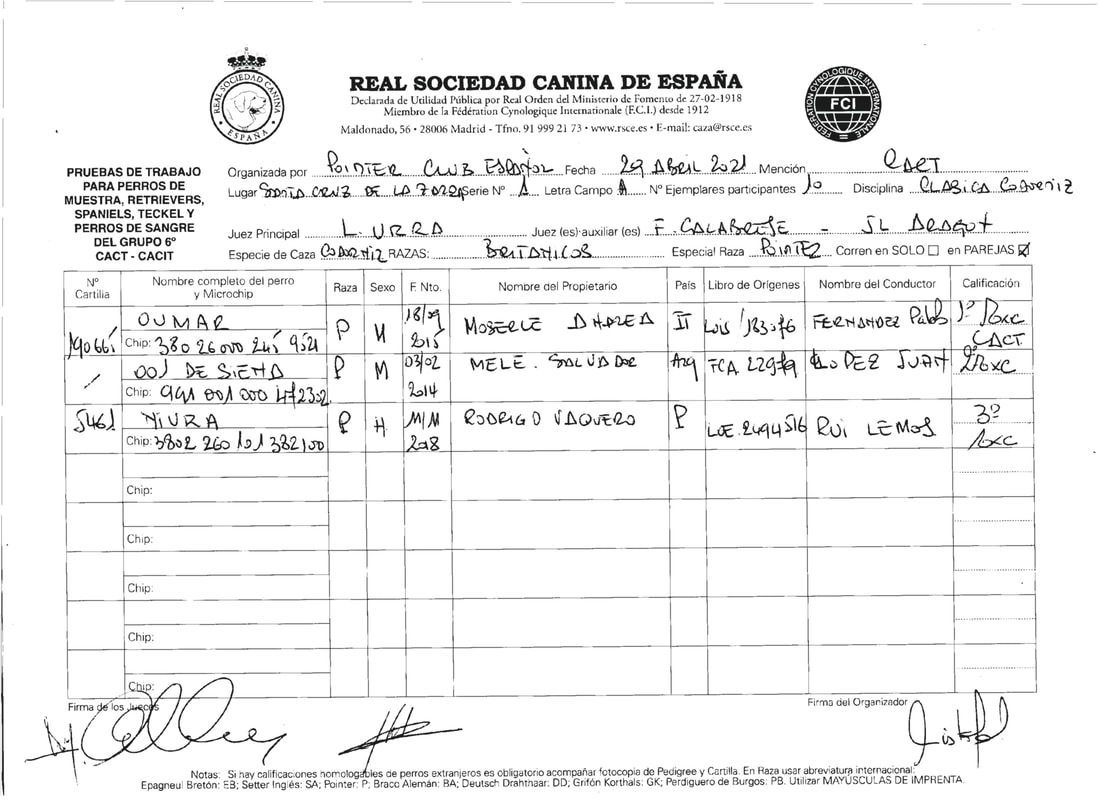 REAL SOCIEDAD CANINA
ESPAÑA
REAL SOCIEDAD CANINA DE ESPAÑA
Declarada de Utilidad Pública por Real Orden del Ministerio de Fomento de 27-02-1918
Miembro de la Fédération Cynologique Internationale (F.C.I.) desde 1912
Maldonado, 56 • 28006 Madrid - Tfno. 91 999 21 73 • www.rsce.es • E-mail: caza@rsce.es
FEDERATION CYNOLOGIQUE INTERNATIONALE
FCI
PRUEBAS DE TRABAJO
PARA PERROS DE
MUESTRA, RETRIEVERS,
SPANIELS, TECKEL Y
PERROS DE SANGRE
DEL GRUPO 6º
CACT - CACIT
Organizada por POINTER CLUB ESPAÑOL Fecha 29 ABRIL 2021 Mención CACT
Lugar SANTA CRUZ DE LA ZARZA Serie Nº A Letra Campo A Nº Ejemplares participantes 10 Disciplina CLASICA CODORNIZ
Juez Principal L. URRA Juez (es)·auxiliar (es) F. CALABRESE - JL
Especie de Caza CODORNIZ RAZAS: BRITANICOS Especial Raza POINTER Corren en SOLO ☐ en PAREJAS ☑
Nº Cartilia Nombre completo del perro y Microchip Raza Sexo F. Nto. Nombre del Propietario País Libro de Orígenes Nombre del Conductor Calificación
OUMAR P M 18/09 2015 DHAREA IT LOIS/183076 FERNANDEZ Pablo 1º 1oxc CACT
Chip: 380 26000 245 9521
001 DE SIENA P M 03/02 2014 MELE. SALVADOR FCA 22979 LOPEZ JUAN 2º 1oxc
Chip: 991 001 000 472302
5461 NIURA P H 2018 RODRIGO VAQUERO P LOE.2494516 RUI LEMOS 3º 1oxc
Chip: 3802 260 101 382100
Chip:
Chip:
Chip:
Chip:
Chip:
Firma de los Jueces
Firma del Organizador
Notas: Si hay calificaciones homologables de perros extranjeros es obligatorio acompañar fotocopia de Pedigree y Cartilla. En Raza usar abreviatura internacional:
Epagneul Bretón: EB; Setter Inglés: SA; Pointer: P; Braco Alemán: BA; Deutsch Drahthaar: DD; Grifón Korthals: GK; Perdiguero de Burgos: PB. Utilizar MAYÚSCULAS DE IMPRENTA.